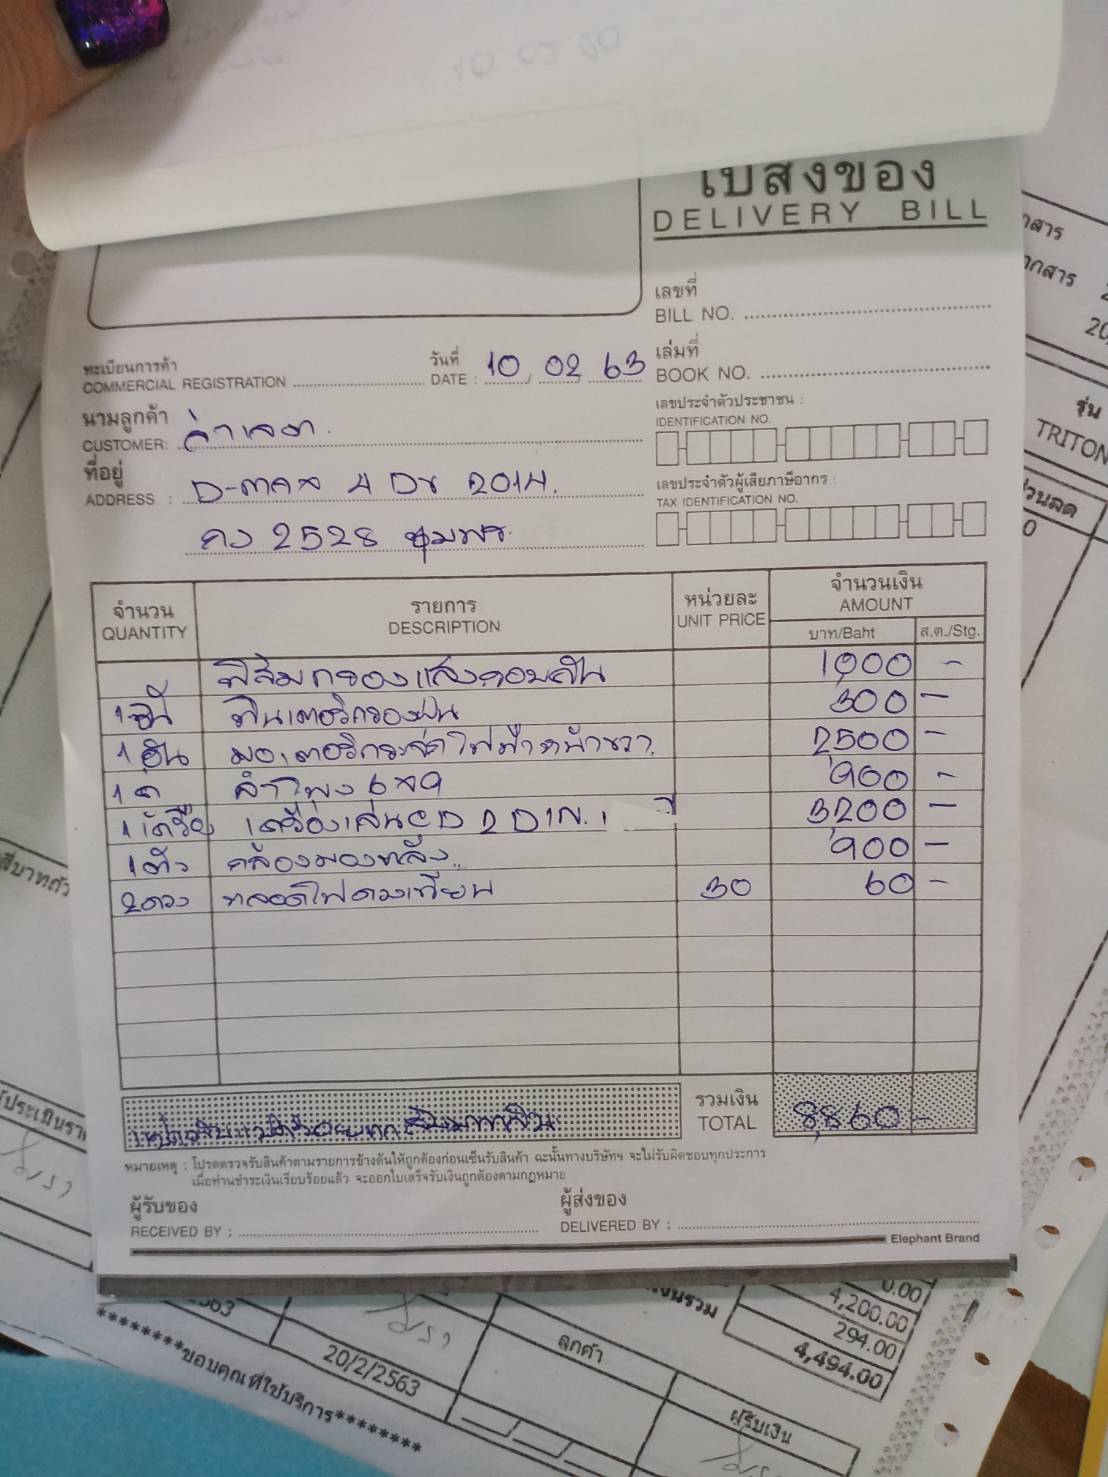 ใบส่งของ
DELIVERY BILL
เลขที่
BILL NO.
ทะเบียนการค้า
COMMERCIAL REGISTRATION
วันที่
DATE : 10 / 02 / 63
เล่มที่
BOOK NO.
นามลูกค้า
CUSTOMER:
เลขประจำตัวประชาชน :
IDENTIFICATION NO.
ที่อยู่
ADDRESS : D-max 4 Dr 2014.
กง 2528 ชุมพร.
เลขประจำตัวผู้เสียภาษีอากร :
TAX IDENTIFICATION NO.
จำนวน
QUANTITY
รายการ
DESCRIPTION
หน่วยละ
UNIT PRICE
จำนวนเงิน
AMOUNT
บาท/Baht
ส.ต./Stg.
ฟิล์มกรองแสงรอบคัน 1,000 -
1 อัน ฟิลเตอร์กรองฝุ่น 300 -
1 อัน มอเตอร์กระจกไฟฟ้าหน้าขวา 2,500 -
1 ด ลำโพง 6x9 900 -
1 เครื่อง เครื่องเล่น CD 2 Din. 3,200 -
1 ตัว กล้องมองหลัง 900 -
2 ดวง หลอดไฟดวงเทียน 30 60 -
แปดพันแปดร้อยหกสิบบาทถ้วน
รวมเงิน
TOTAL
8,860 -
หมายเหตุ : โปรดตรวจรับสินค้าตามรายการข้างต้นให้ถูกต้องก่อนเซ็นรับสินค้า ฉะนั้นทางบริษัทฯ จะไม่รับผิดชอบทุกประการ
เมื่อท่านชำระเงินเรียบร้อยแล้ว จะออกใบเสร็จรับเงินถูกต้องตามกฎหมาย
ผู้รับของ
RECEIVED BY :
ผู้ส่งของ
DELIVERED BY :
Elephant Brand
รุ่น
TRITON
0.00
4,200.00
294.00
4,494.00
20/2/2563
ลูกค้า
ผู้รับเงิน
********ขอบคุณที่ใช้บริการ********